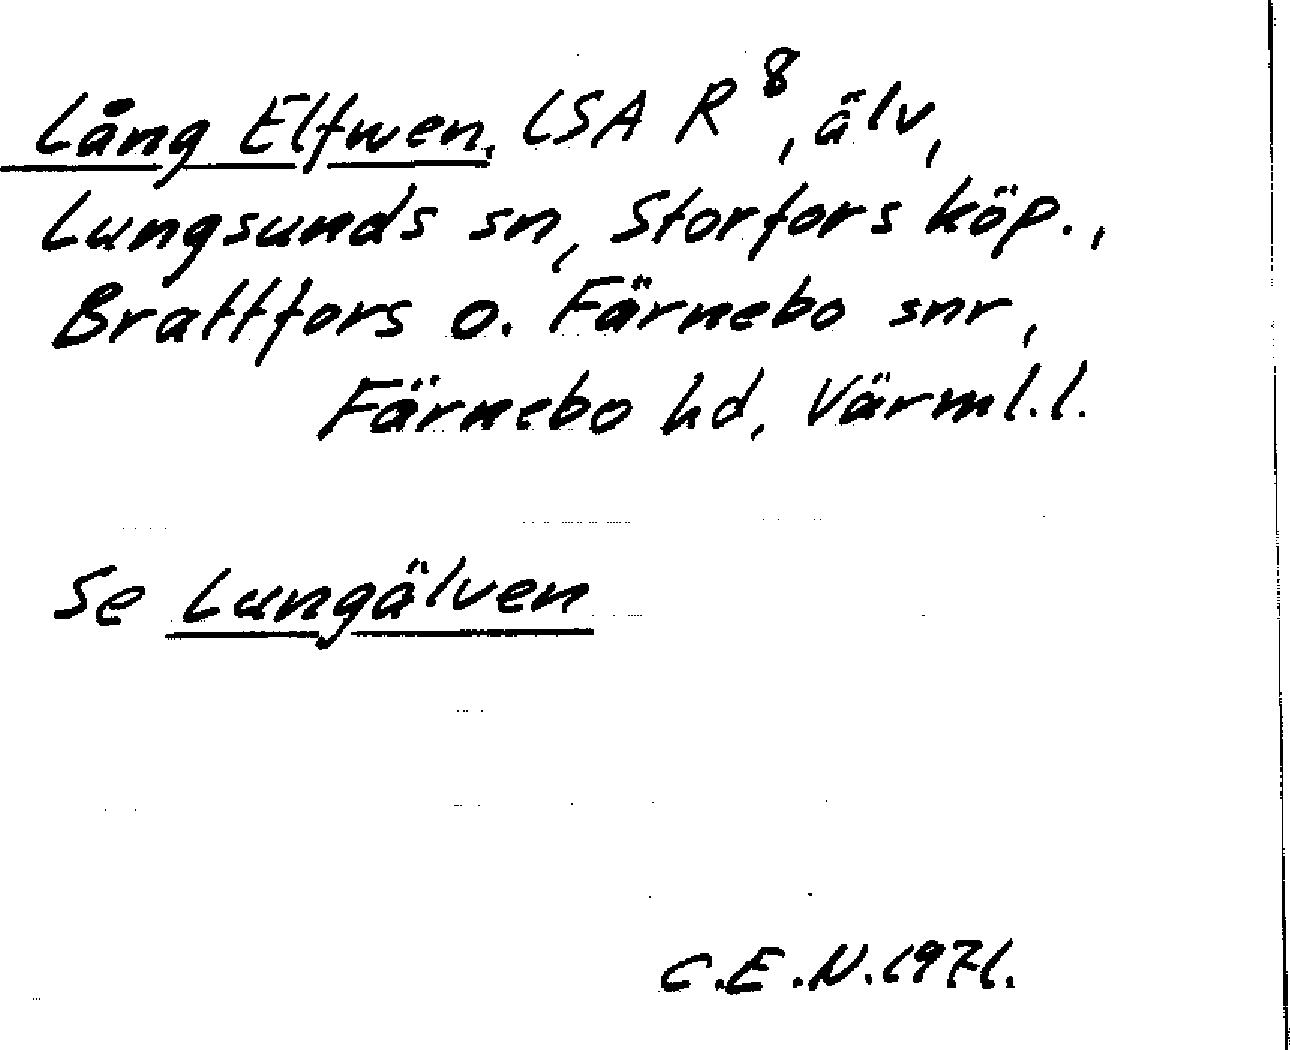 Lång Elfwen, LSA R⁸, älv,
Lungsunds sn, Storfors köp.,
Brattfors o. Färnebo snr,
Färnebo hd, Värml.l.
Se Lungälven
C.E.N.1971.